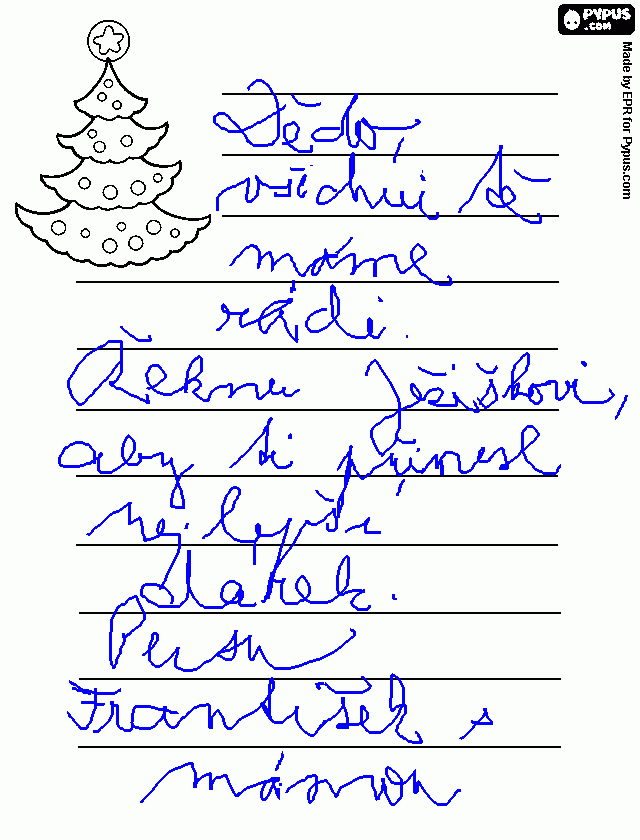 PYPUS
.COM
Made by EPR for Pypus.com
Dědo,
všichni tě
máme
rádi.
Řeknu Ježiškovi,
aby ti přinesl
nejlepší
dárek.
František s
mámou